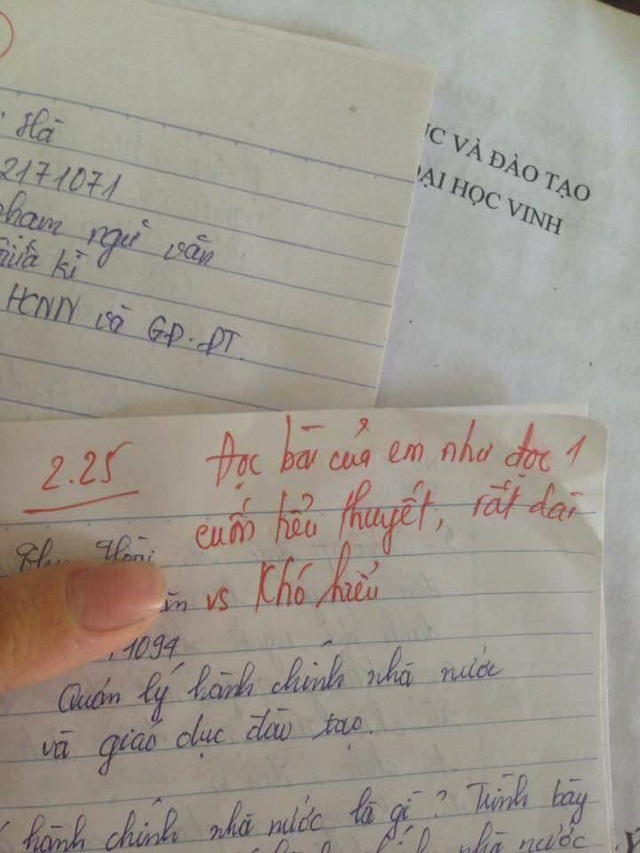 Hà
2171071
phạm ngữ văn
giữa kì
HCNN và GD-ĐT.
ỤC VÀ ĐÀO TẠO
ĐẠI HỌC VINH
2.25
Đọc bài của em như đọc 1
cuốn tiểu thuyết, rất dài
vs khó hiểu
1094
Quản lý hành chính nhà nước
và giáo dục đào tạo.
hành chính nhà nước là gì? Trình bày
nhà nước